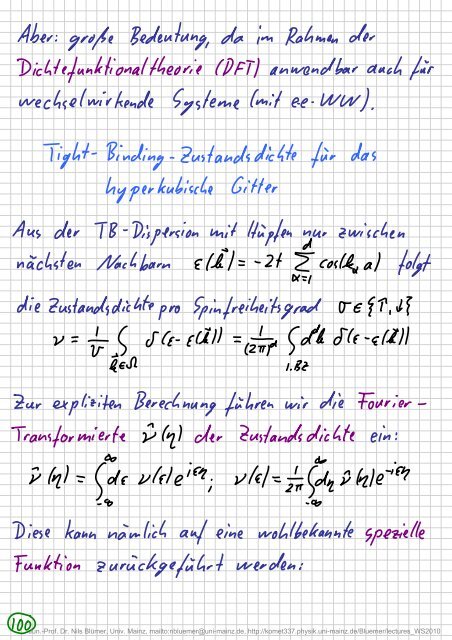 Aber: große Bedeutung, da im Rahmen der
Dichtefunktionaltheorie (DFT) anwendbar auch für
wechselwirkende Systeme (mit ee-WW).
Tight-Binding-Zustandsdichte für das
hyperkubische Gitter
Aus der TB-Dispersion mit Hüpfen nur zwischen
nächsten Nachbarn ε(k⃗) = -2t ∑_{α=1}^{d} cos(k_α a) folgt
die Zustandsdichte pro Spinfreiheitsgrad σ ∈ {↑,↓}
ν = 1/V ∫_{k⃗∈Ω} δ(ε-ε(k⃗)) = 1/(2π)^d ∫_{1.BZ} d^dk δ(ε-ε(k⃗))
Zur expliziten Berechnung führen wir die Fourier-
Transformierte ν̃(η) der Zustandsdichte ein:
ν̃(η) = ∫_{-∞}^{∞} dε ν(ε) e^{iεη}; ν(ε) = 1/2π ∫_{-∞}^{∞} dη ν̃(η) e^{-iεη}
Diese kann nämlich auf eine wohlbekannte spezielle
Funktion zurückgeführt werden:
100
Jun.-Prof. Dr. Nils Blümer, Univ. Mainz, mailto:nbluemer@uni-mainz.de, http://komet337.physik.uni-mainz.de/Bluemer/lectures_WS2010